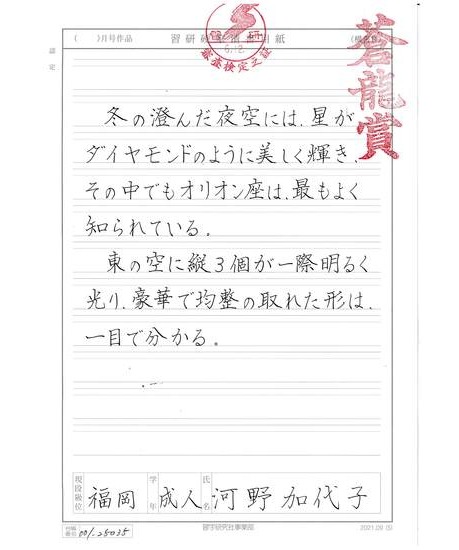 ( )月号作品
(横書)
認定
審査検定之証
蒼龍賞
冬の澄んだ夜空には、星が
ダイヤモンドのように美しく輝き、
その中でもオリオン座は、最もよく
知られている。
東の空に縦3個が一際明るく
光り、豪華で均整の取れた形は、
一目で分かる。
現段級位 福岡 学年 成人 氏名 河野加代子
001-25035
習字研究社事業部